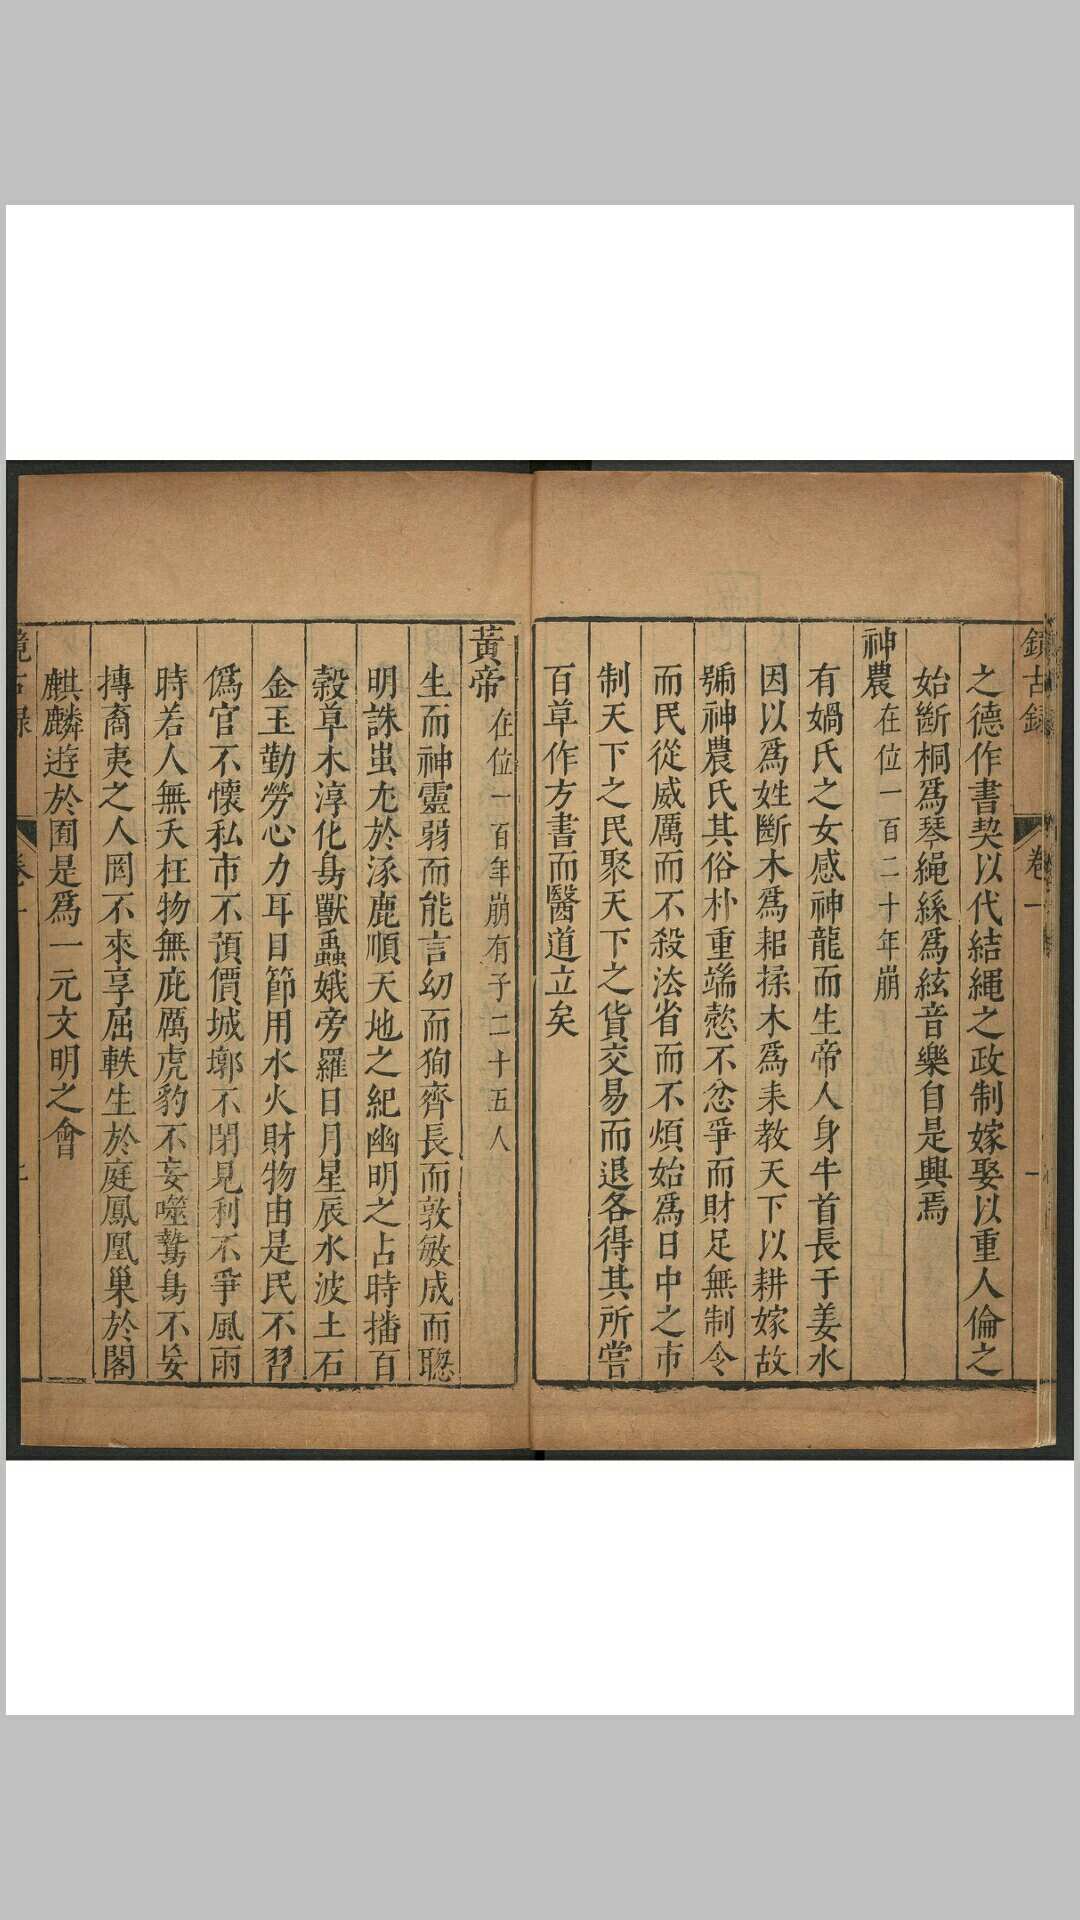 鏡古録
卷一
一
之德作書契以代結繩之政制嫁娶以重人倫之
始斷桐爲琴繩絲爲絃音樂自是興焉
神農在位一百二十年崩
有媧氏之女感神龍而生帝人身牛首長于姜水
因以爲姓斵木爲耜揉木爲耒教天下以耕嫁故
號神農氏其俗朴重端愨不忿爭而財足無制令
而民從威厲而不殺法省而不煩始爲日中之市
制天下之民聚天下之貨交易而退各得其所嘗
百草作方書而醫道立矣
黃帝在位一百年崩有子二十五人
生而神靈弱而能言幼而狥齊長而敦敏成而聰
明誅蚩尤於涿鹿順天地之紀幽明之占時播百
穀草木淳化鳥獸蟲蛾旁羅日月星辰水波土石
金玉勤勞心力耳目節用水火財物由是民不習
僞官不懷私市不預價城墎不閉見利不爭風雨
時若人無夭枉物無庇厲虎豹不妄噬鷙鳥不妄
搏裔夷之人罔不來享屈軼生於庭鳳凰巢於閣
麒麟遊於囿是爲一元文明之會
鏡古録
卷一